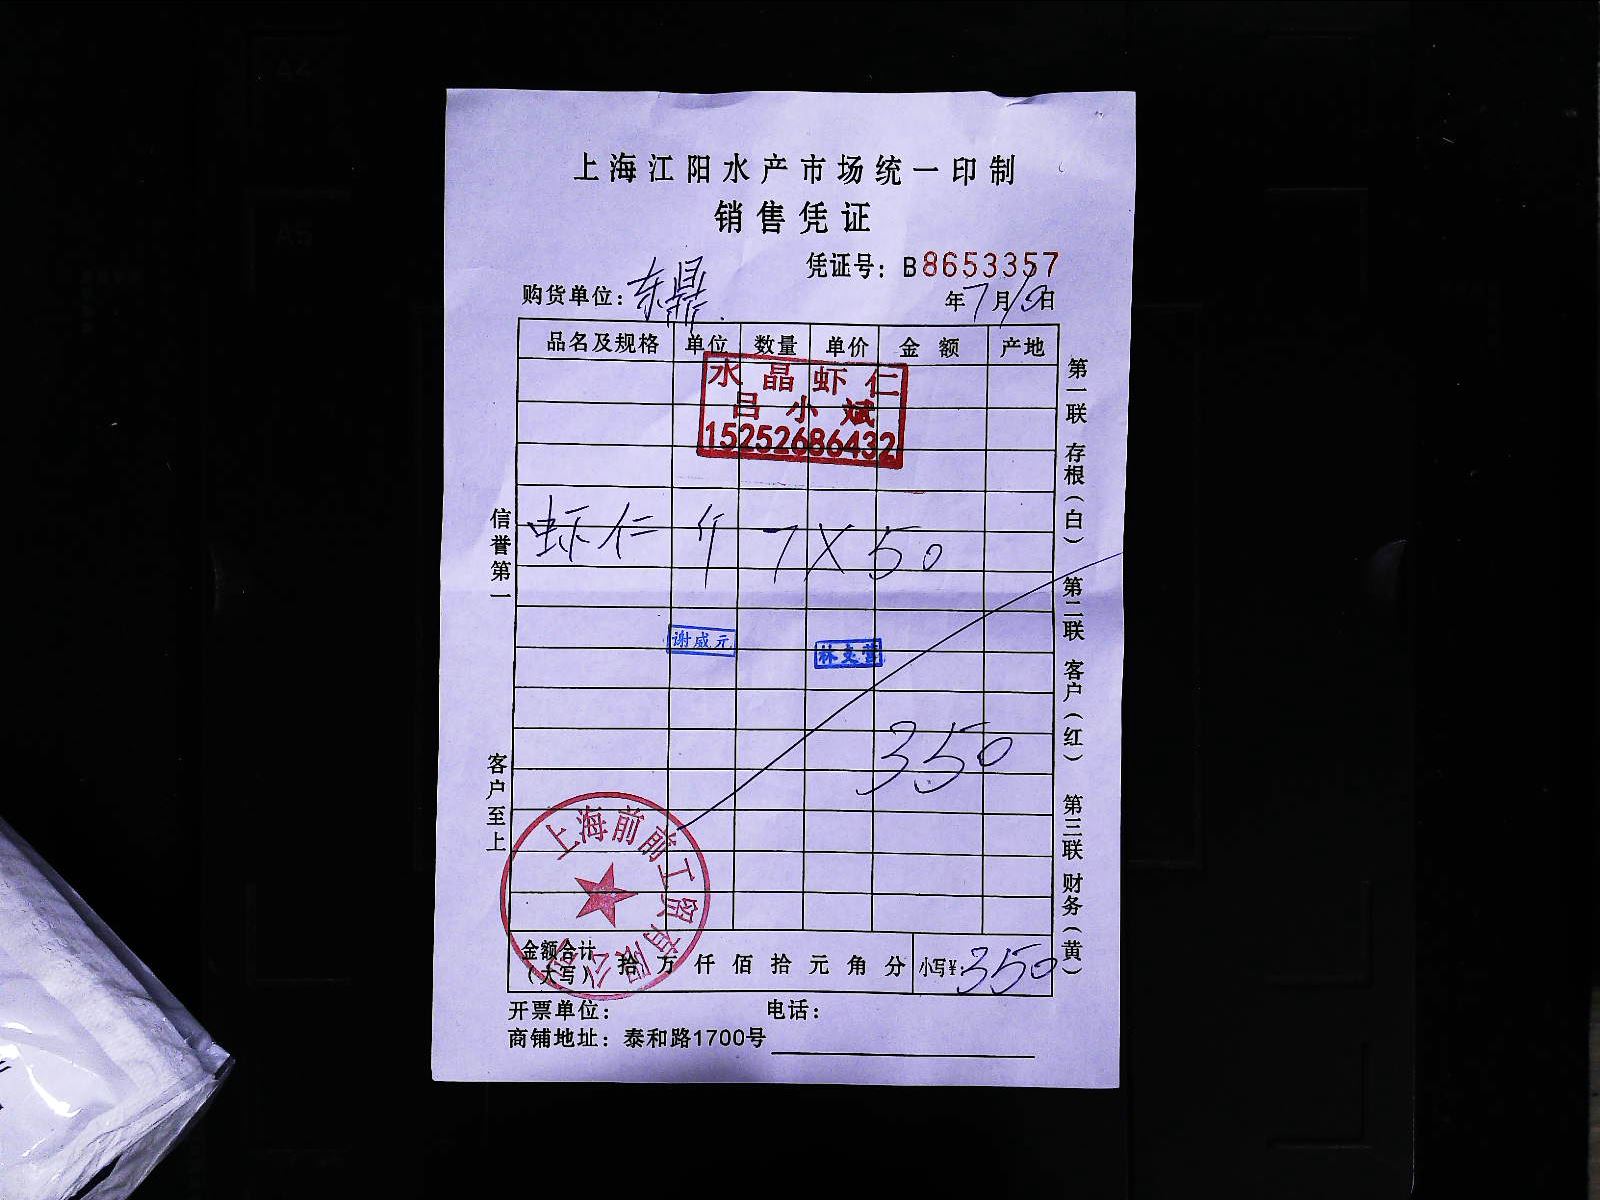 上海江阳水产市场统一印制
销售凭证
凭证号：B8653357
购货单位：东鼎
年7月10日
品名及规格 单位 数量 单价 金 额 产地
水晶虾仁
吕小斌
15252686432
虾仁 斤 7 X 50
谢威元
350
上海前前工贸有限公司
金额合计（大写） 拾 万 仟 佰 拾 元 角 分 小写¥：350
开票单位： 电话：
商铺地址：泰和路1700号
信誉第一 客户至上
第一联 存根（白） 第二联 客户（红） 第三联 财务（黄）